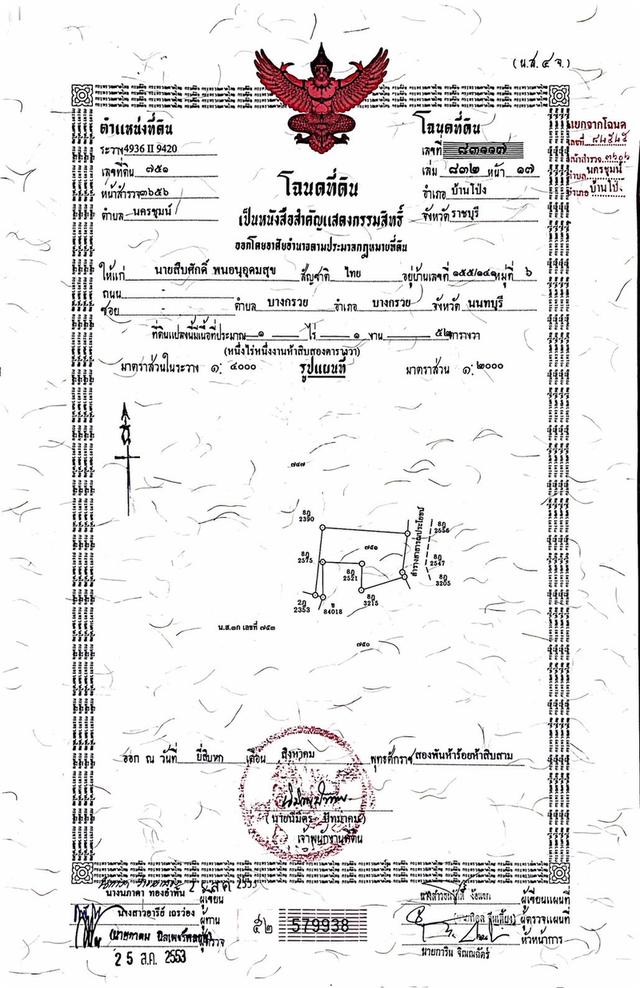 (น.ส.๔ จ.)
ตำแหน่งที่ดิน
ระวาง 4936 II 9420
เลขที่ดิน ๗๕๑
หน้าสำรวจ ๓๖๕๖
ตำบล นครชุมน์
โฉนดที่ดิน
เลขที่ ๘๓๑๑๗
เล่ม ๘๓๒ หน้า ๑๗
อำเภอ บ้านโป่ง
จังหวัด ราชบุรี
แยกจากโฉนด
เลขที่
หน้าสำรวจ
ตำบล นครชุมน์
อำเภอ บ้านโป่ง
โฉนดที่ดิน
เป็นหนังสือสำคัญแสดงกรรมสิทธิ์
ออกโดยอาศัยอำนาจตามประมวลกฎหมายที่ดิน
ให้แก่ นายสืบศักดิ์ พนอนุอุดมสุข สัญชาติ ไทย อยู่บ้านเลขที่ ๑๕๕/๑๔๑ หมู่ที่ ๖
ถนน -
ซอย - ตำบล บางกรวย อำเภอ บางกรวย จังหวัด นนทบุรี
ที่ดินแปลงนี้มีเนื้อที่ประมาณ ๑ ไร่ ๑ งาน ๕๒ ตารางวา
(หนึ่งไร่หนึ่งงานห้าสิบสองตารางวา)
มาตราส่วนในระวาง ๑: ๔๐๐๐ รูปแผนที่ มาตราส่วน ๑:๒๐๐๐
น
๗๔๗
8ฎ
2390
8ฎ
2556
ลำรางสาธารณประโยชน์
๗๕๑
8ฎ
2575
8ฎ
2547
8ฎ
2521
8ฎ
3205
8ฎ
3215
2ฎ
2353
ข
84018
น.ส.๓ก เลขที่ ๗๕๓
๗๕๐
ออก ณ วันที่ ยี่สิบหก เดือน สิงหาคม พุทธศักราช สองพันห้าร้อยห้าสิบสาม
(นายนิมิตร ปัทมาคม)
เจ้าพนักงานที่ดิน
นางนภาดา ทองอำพัน ผู้เขียน
นางสาวอารีย์ เถรว่อง ผู้ทาน
ผู้ตรวจ
2 5 ส.ค. 2553
๕๒ 579938
ผู้เขียนแผนที่
ผู้ตรวจแผนที่
หัวหน้าการ
นายการิน จิณณฉัตร์